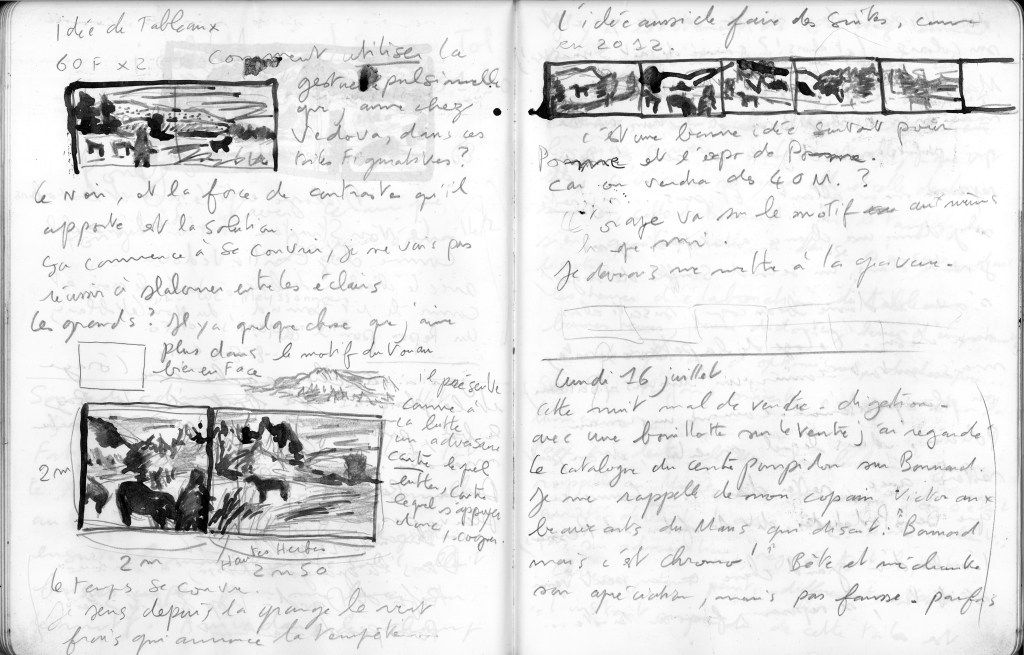 Idée de Tableaux
60 F x 2
Comment utiliser la
gestuelle pulsionnelle
que j'aime chez
Vedova, dans ces
toiles Figuratives ?
Le noir, et la force de contraste qu'il
apporte est la solution.
Ça commence à se couvrir, je ne vais pas
réussir à slalomer entre les éclairs
Les grands ? Il y a quelque chose que j'aime
plus dans le motif du Vouan
bien en Face
il présente
comme à
la lutte
un adversaire
contre lequel
lutter, contre
lequel s'appuyer
donc
2 m
2 m
Hautes Herbes
2 m 50
le temps se couvre.
Je sens depuis la grange le vent
frais qui annonce la tempête
L'idée aussi de faire des suites, comme
en 2012.
c'est une bonne idée surtout pour
et l'expo de
car on vendra des 40 M. ?
L'orage va sur le motif
Je devrais me mettre à la gravure.
Lundi 16 juillet
Cette nuit mal de ventre - digestion -
avec une bouillotte sur le ventre j'ai regardé
le catalogue du centre pompidou sur Bonnard.
Je me rappelle de mon copain Victor aux
beaux arts du Mans qui disait : "Bonnard
mais c'est chromo !" Bête et méchante
son apréciation, mais pas fausse. parfois